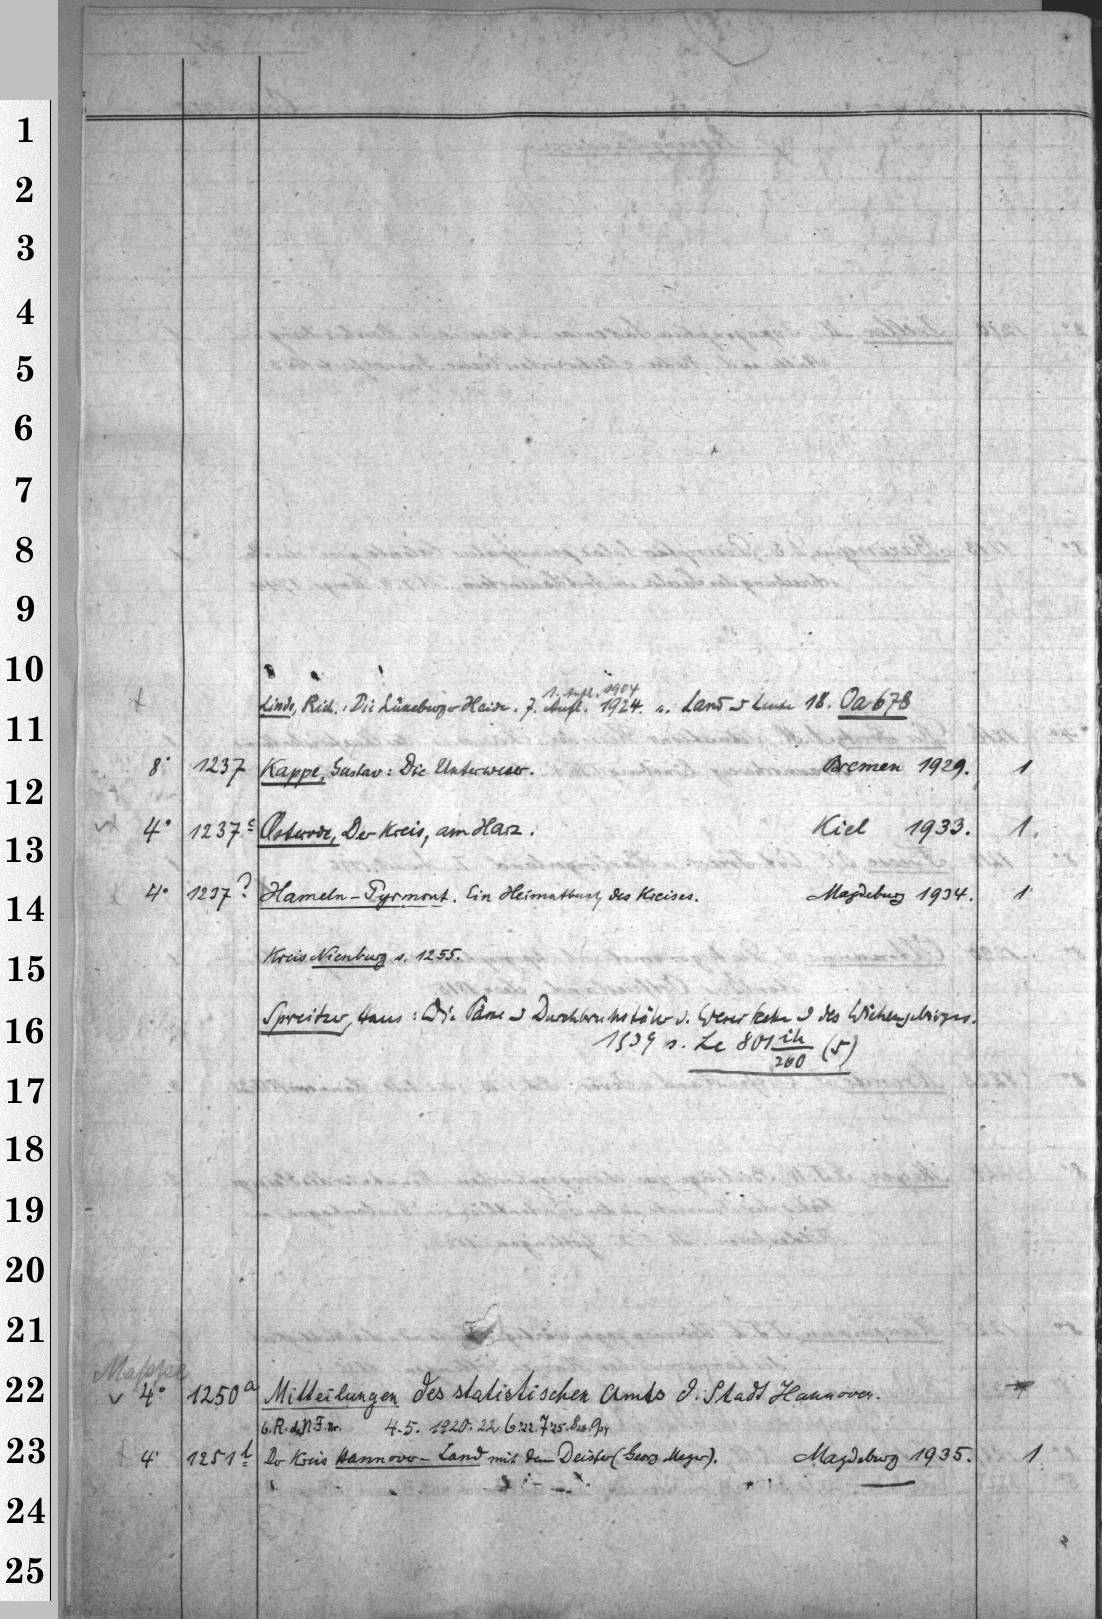 1
2
3
4
5
6
7
8
9
10
1. Aufl. 1904
Linde, Rich.: Die Lüneburger Heide. 7. Aufl. 1924. s. Land u Leute 18. Oa 678
11
8° 1237 Kappe, Gustav: Die Unterweser. Bremen 1929. 1
12
4° 1237c Osterode, Der Kreis, am Harz. Kiel 1933. 1.
13
4° 1237? Hameln-Pyrmont. Ein Heimatbuch des Kreises. Magdeburg 1934. 1
14
Kreis Nienburg s. 1255.
15
Spreitzer, Hans: Die Pässe u Durchbruchstäler d. Weserkette u des Wiehengebirges.
16
1939 s. Le 801 (5)
200
17
18
19
20
21
Mappe
22
4° 1250a Mitteilungen des statistischen Amts d. Stadt Hannover.
4.5. 1920. 22
23
4° 1251b Der Kreis Hannover-Land mit dem Deister (Georg Meyer). Magdeburg 1935. 1
24
25